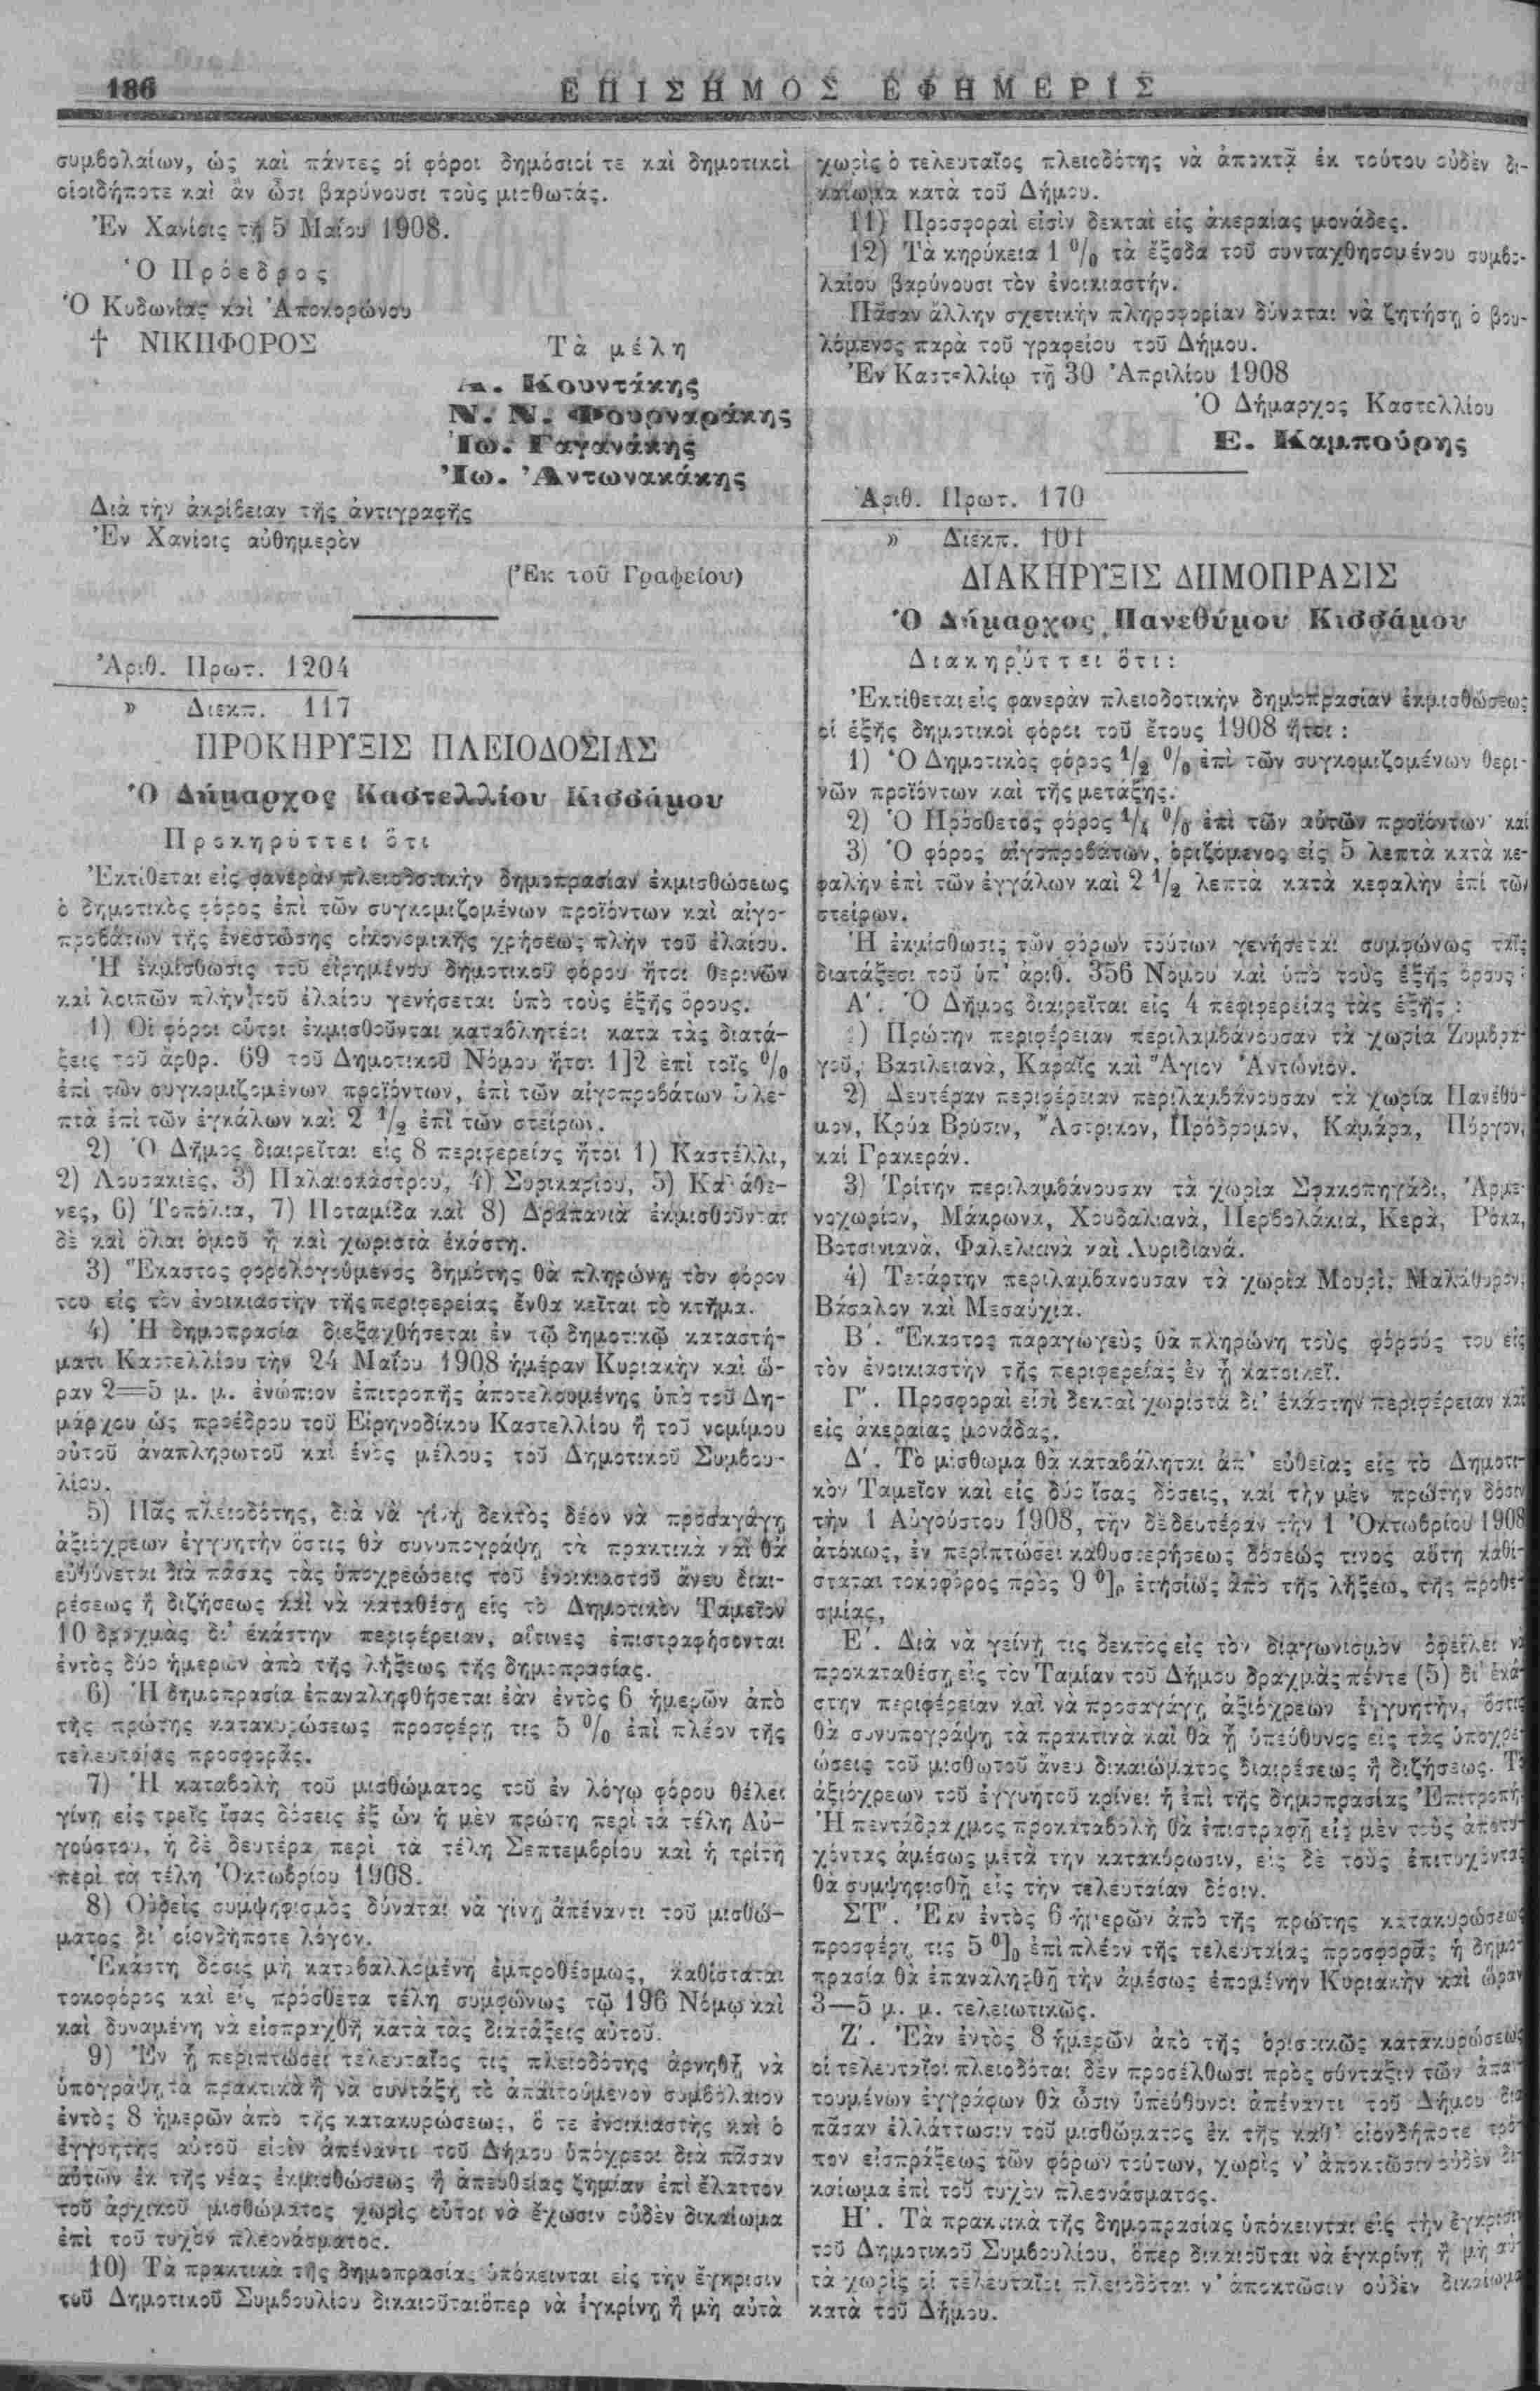 186
ΕΠΙΣΗΜΟΣ ΕΦΗΜΕΡΙΣ
συμβολαίων, ὡς καὶ πάντες οἱ φόροι δημόσιοί τε καὶ δημοτικοὶ
οἱοιδήποτε καὶ ἂν ὦσι βαρύνουσι τοὺς μισθωτάς.
Ἐν Χανίοις τῇ 5 Μαΐου 1908.
Ὁ Πρόεδρος
Ὁ Κυδωνίας καὶ Ἀποκορώνου
† ΝΙΚΗΦΟΡΟΣ
Τὰ μέλη
Α. Κουντάκης
Ν. Ν. Φουρναράκης
Ἰω. Γαγανάκης
Ἰω. Ἀντωνακάκης
Διὰ τὴν ἀκρίβειαν τῆς ἀντιγραφῆς
Ἐν Χανίοις αὐθημερὸν
(Ἐκ τοῦ Γραφείου)
Ἀριθ. Πρωτ. 1204
» Διεκπ. 117
ΠΡΟΚΗΡΥΞΙΣ ΠΛΕΙΟΔΟΣΙΑΣ
Ὁ Δήμαρχος Καστελλίου Κισσάμου
Προκηρύττει ὅτι
Ἐκτίθεται εἰς φανερὰν πλειοδοτικὴν δημοπρασίαν ἐκμισθώσεως
ὁ δημοτικὸς φόρος ἐπὶ τῶν συγκομιζομένων προϊόντων καὶ αἰγο-
προβάτων τῆς ἐνεστώσης οἰκονομικῆς χρήσεως πλὴν τοῦ ἐλαίου.
Ἡ ἐκμίσθωσις τοῦ εἰρημένου δημοτικοῦ φόρου ἤτοι θερινῶν
καὶ λοιπῶν πλὴν τοῦ ἐλαίου γενήσεται ὑπὸ τοὺς ἑξῆς ὅρους.
1) Οἱ φόροι οὗτοι ἐκμισθοῦνται καταβλητέοι κατα τὰς διατά-
ξεις τοῦ ἄρθρ. 69 τοῦ Δημοτικοῦ Νόμου ἤτοι 1]2 ἐπὶ τοῖς 0/0
ἐπὶ τῶν συγκομιζομένων προϊόντων, ἐπὶ τῶν αἰγοπροβάτων 5 λε-
πτὰ ἐπὶ τῶν ἐγκάλων καὶ 2 1/2 ἐπὶ τῶν στείρων.
2) Ὁ Δῆμος διαιρεῖται εἰς 8 περιφερείας ἤτοι 1) Καστέλλι,
2) Λουσακιὲς, 3) Παλαιοκάστρου, 4) Συρικαρίου, 5) Καλάθε-
νες, 6) Τοπόλια, 7) Ποταμίδα καὶ 8) Δραπανιὰ ἐκμισθοῦνται
δὲ καὶ ὅλαι ὁμοῦ ἢ καὶ χωριστὰ ἑκάστη.
3) Ἕκαστος φορολογούμενος δημότης θὰ πληρώνῃ τὸν φόρον
του εἰς τὸν ἐνοικιαστὴν τῆς περιφερείας ἔνθα κεῖται τὸ κτῆμα.
4) Ἡ δημοπρασία διεξαχθήσεται ἐν τῷ δημοτικῷ καταστή-
ματι Καστελλίου τὴν 24 Μαΐου 1908 ἡμέραν Κυριακὴν καὶ ὥ-
ραν 2=5 μ. μ. ἐνώπιον ἐπιτροπῆς ἀποτελουμένης ὑπὸ τοῦ Δη-
μάρχου ὡς προέδρου τοῦ Εἰρηνοδίκου Καστελλίου ἢ τοῦ νομίμου
αὐτοῦ ἀναπληρωτοῦ καὶ ἑνὸς μέλους τοῦ Δημοτικοῦ Συμβου-
λίου.
5) Πᾶς πλειοδότης, διὰ νὰ γίνῃ δεκτὸς δέον νὰ προσαγάγῃ
ἀξιόχρεων ἐγγυητὴν ὅστις θὰ συνυπογράψῃ τὰ πρακτικὰ καὶ θὰ
εὐθύνεται διὰ πᾶσας τὰς ὑποχρεώσεις τοῦ ἐνοικιαστοῦ ἄνευ διαι-
ρέσεως ἢ διζήσεως καὶ νὰ καταθέσῃ εἰς τὸ Δημοτικὸν Ταμεῖον
10 δραχμὰς δι' ἑκάστην περιφέρειαν, αἵτινες ἐπιστραφήσονται
ἐντὸς δύο ἡμερῶν ἀπὸ τῆς λήξεως τῆς δημοπρασίας.
6) Ἡ δημοπρασία ἐπαναληφθήσεται ἐὰν ἐντὸς 6 ἡμερῶν ἀπὸ
τῆς πρώτης κατακυρώσεως προσφέρῃ τις 5 0/0 ἐπὶ πλέον τῆς
τελευταίας προσφορᾶς.
7) Ἡ καταβολὴ τοῦ μισθώματος τοῦ ἐν λόγῳ φόρου θέλει
γίνῃ εἰς τρεῖς ἴσας δόσεις ἐξ ὧν ἡ μὲν πρώτη περὶ τὰ τέλη Αὐ-
γούστου, ἡ δὲ δευτέρα περὶ τὰ τέλη Σεπτεμβρίου καὶ ἡ τρίτη
περὶ τὰ τέλη Ὀκτωβρίου 1908.
8) Οὐδεὶς συμψηφισμὸς δύναται νὰ γίνῃ ἀπέναντι τοῦ μισθώ-
ματος δι' οἱονδήποτε λόγον.
Ἑκάστη δόσις μὴ καταβαλλομένη ἐμπροθέσμως, καθίσταται
τοκοφόρος καὶ εἰς πρόσθετα τέλη συμφώνως τῷ 196 Νόμῳ καὶ
καὶ δυναμένη νὰ εἰσπραχθῇ κατὰ τὰς διατάξεις αὐτοῦ.
9) Ἐν ᾗ περιπτώσει τελευταῖος τις πλειοδότης ἀρνηθῇ νὰ
ὑπογράψῃ τὰ πρακτικὰ ἢ νὰ συντάξῃ τὸ ἀπαιτούμενον συμβόλαιον
ἐντὸς 8 ἡμερῶν ἀπὸ τῆς κατακυρώσεως, ὅ τε ἐνοικιαστὴς καὶ ὁ
ἐγγυητὴς αὐτοῦ εἰσὶν ἀπέναντι τοῦ Δήμου ὑπόχρεοι διὰ πᾶσαν
αὐτῶν ἐκ τῆς νέας ἐκμισθώσεως ἢ ἀπευθείας ζημίαν ἐπὶ ἔλαττον
τοῦ ἀρχικοῦ μισθώματος χωρὶς οὗτοι νὰ ἔχωσιν οὐδὲν δικαίωμα
ἐπὶ τοῦ τυχὸν πλεονάσματος.
10) Τὰ πρακτικὰ τῆς δημοπρασίας ὑπόκεινται εἰς τὴν ἔγκρισιν
τοῦ Δημοτικοῦ Συμβουλίου δικαιοῦται ὅπερ νὰ ἐγκρίνῃ ἢ μὴ αὐτὰ
χωρὶς ὁ τελευταῖος πλειοδότης νὰ ἀποκτᾷ ἐκ τούτου οὐδὲν δι-
καίωμα κατὰ τοῦ Δήμου.
11) Προσφοραὶ εἰσὶν δεκταὶ εἰς ἀκεραίας μονάδες.
12) Τὰ κηρύκεια 1 0/0 τὰ ἔξοδα τοῦ συνταχθησομένου συμβο-
λαίου βαρύνουσι τὸν ἐνοικιαστήν.
Πᾶσαν ἄλλην σχετικὴν πληροφορίαν δύναται νὰ ζητήσῃ ὁ βου-
λόμενος παρὰ τοῦ γραφείου τοῦ Δήμου.
Ἐν Καστελλίῳ τῇ 30 Ἀπριλίου 1908
Ὁ Δήμαρχος Καστελλίου
Ε. Καμπούρης
Ἀριθ. Πρωτ. 170
» Διεκπ. 101
ΔΙΑΚΗΡΥΞΙΣ ΔΗΜΟΠΡΑΣΙΣ
Ὁ Δήμαρχος Πανεθύμου Κισσάμου
Διακηρύττει ὅτι:
Ἐκτίθεται εἰς φανερὰν πλειοδοτικὴν δημοπρασίαν ἐκμισθώσεως
οἱ ἑξῆς δημοτικοὶ φόροι τοῦ ἔτους 1908 ἤτοι:
1) Ὁ Δημοτικὸς φόρος 1/2 0/0 ἐπὶ τῶν συγκομιζομένων θερι-
νῶν προϊόντων καὶ τῆς μετάξης.
2) Ὁ Πρόσθετος φόρος 1/4 0/0 ἐπὶ τῶν αὐτῶν προϊόντων καὶ
3) Ὁ φόρος αἰγοπροβάτων, ὁριζόμενος εἰς 5 λεπτὰ κατὰ κε-
φαλὴν ἐπὶ τῶν ἐγγάλων καὶ 2 1/2 λεπτὰ κατὰ κεφαλὴν ἐπὶ τῶν
στείρων.
Ἡ ἐκμίσθωσις τῶν φόρων τούτων γενήσεται συμφώνως ταῖς
διατάξεσι τοῦ ὑπ' ἀριθ. 356 Νόμου καὶ ὑπὸ τοὺς ἑξῆς ὅρους:
Α'. Ὁ Δῆμος διαιρεῖται εἰς 4 πεφιφερείας τὰς ἑξῆς:
1) Πρώτην περιφέρειαν περιλαμβάνουσαν τὰ χωρία Ζυμβρα-
γοῦ, Βασιλειανὰ, Καραῖς καὶ Ἅγιον Ἀντώνιον.
2) Δευτέραν περιφέρειαν περιλαμβάνουσαν τὰ χωρία Πανέθυ-
μον, Κρύα Βρύσιν, Ἄστρικον, Πρόδρομον, Καμάρα, Πύργον,
καὶ Γρακεράν.
3) Τρίτην περιλαμβάνουσαν τὰ χωρία Σφακοπηγάδι, Ἀρμε-
νοχωρίον, Μάκρωνα, Χουδαλιανὰ, Περβολάκια, Κερὰ, Ρόκα,
Βοτσινιανὰ, Φαλελιανὰ καὶ Λυριδιανά.
4) Τετάρτην περιλαμβανουσαν τὰ χωρία Μουρὶ, Μαλάθυρον,
Βάσαλον καὶ Μεσαύχια.
Β'. Ἕκαστος παραγωγεὺς θὰ πληρώνῃ τοὺς φόρους του εἰς
τὸν ἐνοικιαστὴν τῆς περιφερείας ἐν ᾗ κατοικεῖ.
Γ'. Προσφοραὶ εἰσὶ δεκταὶ χωριστὰ δι' ἑκάστην περιφέρειαν καὶ
εἰς ἀκεραίας μονάδας.
Δ'. Τὸ μίσθωμα θὰ καταβάληται ἀπ' εὐθείας εἰς τὸ Δημοτι-
κὸν Ταμεῖον καὶ εἰς δύο ἴσας δόσεις, καὶ τὴν μὲν πρώτην δόσιν
τὴν 1 Αὐγούστου 1908, τὴν δὲ δευτέραν τὴν 1 Ὀκτωβρίου 1908
ἀτόκως, ἐν περιπτώσει καθυστερήσεως δόσεώς τινος αὕτη καθί-
σταται τοκοφόρος πρὸς 9 0]0 ἐτησίως ἀπὸ τῆς λήξεως τῆς προθε-
σμίας,
Ε'. Διὰ νὰ γείνῃ τις δεκτὸς εἰς τὸν διαγωνισμὸν ὀφείλει νὰ
προκαταθέσῃ εἰς τὸν Ταμίαν τοῦ Δήμου δραχμὰς πέντε (5) δι' ἑκά-
στην περιφέρειαν καὶ νὰ προσαγάγῃ ἀξιόχρεων ἐγγυητὴν, ὅστις
θὰ συνυπογράψῃ τὰ πρακτικὰ καὶ θὰ ᾖ ὑπεύθυνος εἰς τὰς ὑποχρε-
ώσεις τοῦ μισθωτοῦ ἄνευ δικαιώματος διαιρέσεως ἢ διζήσεως. Τὸ
ἀξιόχρεων τοῦ ἐγγυητοῦ κρίνει ἡ ἐπὶ τῆς δημοπρασίας Ἐπιτροπή.
Ἡ πεντάδραχμος προκαταβολὴ θὰ ἐπιστραφῇ εἰς μὲν τοὺς ἀποτυ-
χόντας ἀμέσως μετὰ τὴν κατακύρωσιν, εἰς δὲ τοὺς ἐπιτυχόντας
θὰ συμψηφισθῇ εἰς τὴν τελευταίαν δόσιν.
ΣΤ'. Ἐὰν ἐντὸς 6 ἡμερῶν ἀπὸ τῆς πρώτης κατακυρώσεως
προσφέρῃ τις 5 0]0 ἐπὶ πλέον τῆς τελευταίας προσφορᾶς ἡ δημο-
πρασία θὰ ἐπαναληφθῇ τὴν ἀμέσως ἑπομένην Κυριακὴν καὶ ὥραν
3—5 μ. μ. τελειωτικῶς.
Ζ'. Ἐὰν ἐντὸς 8 ἡμερῶν ἀπὸ τῆς ὁριστικῶς κατακυρώσεως
οἱ τελευταῖοι πλειοδόται δὲν προσέλθωσι πρὸς σύνταξιν τῶν ἀπαι-
τουμένων ἐγγράφων θὰ ὦσιν ὑπεύθυνοι ἀπέναντι τοῦ Δήμου διὰ
πᾶσαν ἐλλάττωσιν τοῦ μισθώματος ἐκ τῆς καθ' οἱονδήποτε τρό-
πον εἰσπράξεως τῶν φόρων τούτων, χωρὶς ν' ἀποκτῶσιν οὐδὲν δι-
καίωμα ἐπὶ τοῦ τυχὸν πλεονάσματος.
Η'. Τὰ πρακτικὰ τῆς δημοπρασίας ὑπόκεινται εἰς τὴν ἔγκρισιν
τοῦ Δημοτικοῦ Συμβουλίου, ὅπερ δικαιοῦται νὰ ἐγκρίνῃ ἢ μὴ αὐ-
τὰ χωρὶς οἱ τελευταῖοι πλειοδόται ν' ἀποκτῶσιν οὐδὲν δικαίωμα
κατὰ τοῦ Δήμου.